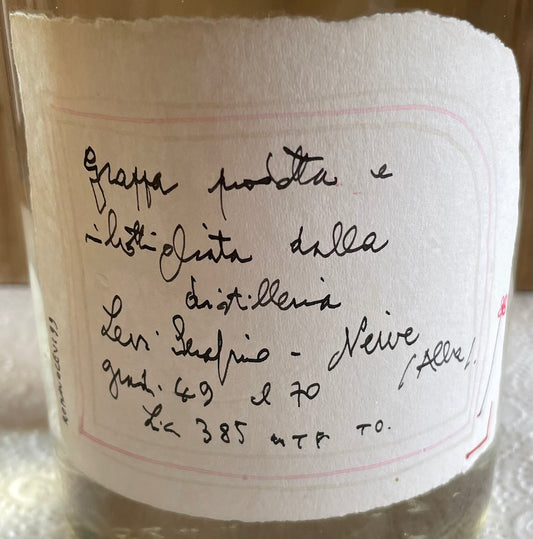 grappa prodotta e
imbottigliata dalla
distilleria
Levi Serafino - Neive
(Alba).
gradi 49 cl 70
Lic 385 UTF TO.